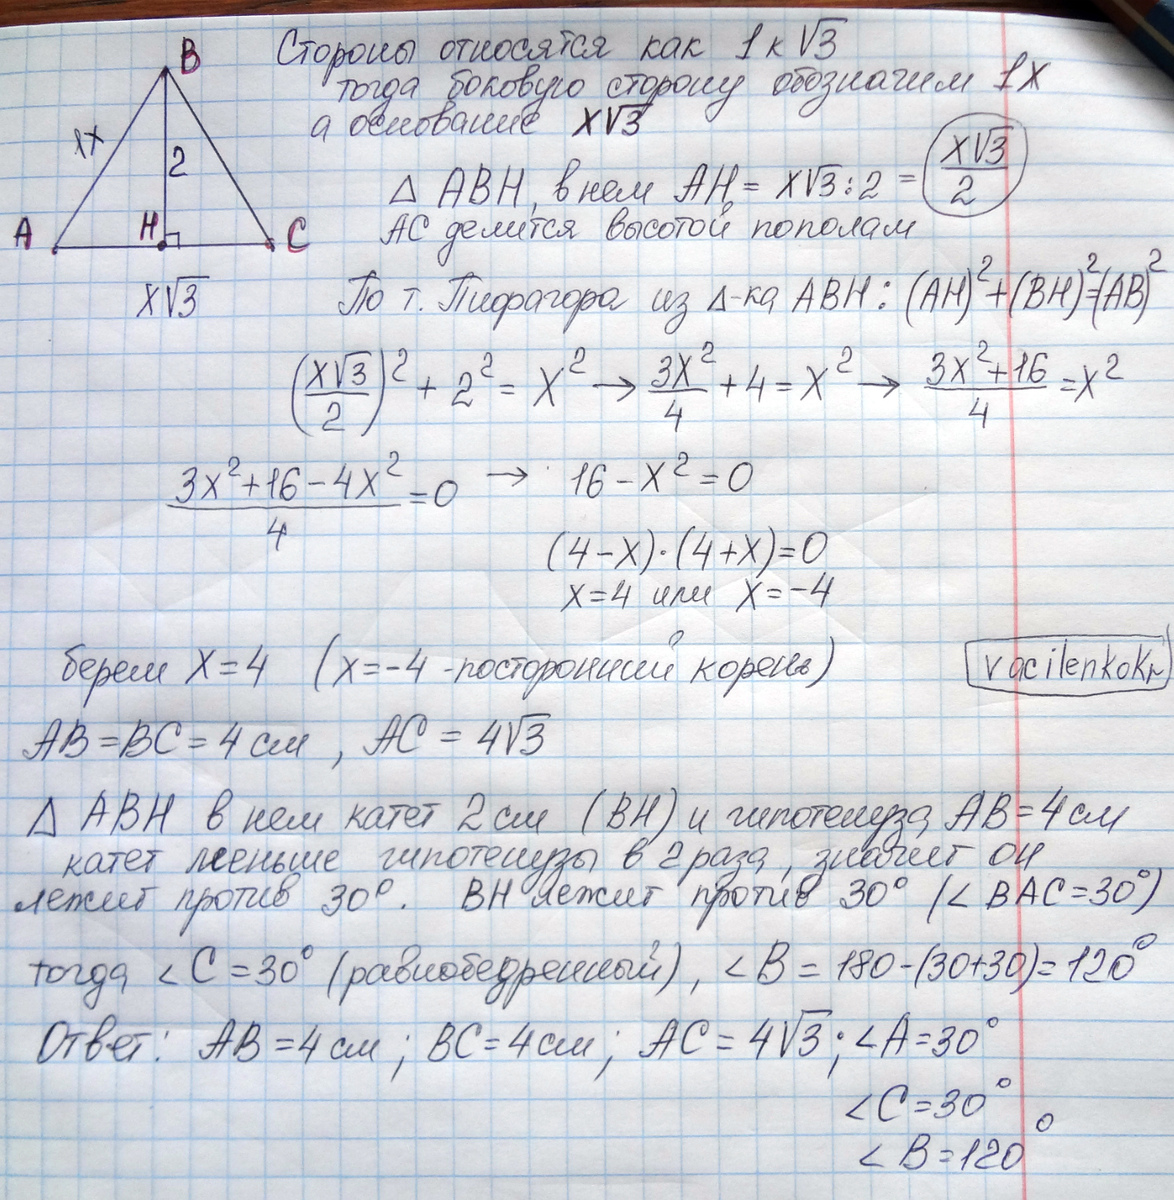 B
Стороны относятся как 1 к √3
тогда боковую сторону обозначим 1x
а основание x√3
1x
2
A
H
C
x√3
Δ ABH, в нем AH = x√3 : 2 = x√3/2
AC делится высотой пополам
По т. Пифагора из Δ-ка ABH: (AH)²+(BH)²=(AB)²
(x√3/2)² + 2² = x² → 3x²/4 + 4 = x² → (3x²+16)/4 = x²
(3x²+16-4x²)/4 = 0 → 16 - x² = 0
(4-x)·(4+x)=0
x=4 или x=-4
берем x=4 (x=-4 -посторонний корень)
vacilenkoKr
AB=BC=4 см, AC = 4√3
Δ ABH в нем катет 2 см (BH) и гипотенуза AB=4 см
катет меньше гипотенузы в 2 раза, значит он
лежит против 30°. BH лежит против 30° (∠ BAC=30°)
тогда ∠C=30° (равнобедренный), ∠B = 180-(30+30)=120°
Ответ: AB=4 см; BC=4 см; AC=4√3; ∠A=30°
∠C=30°
∠B=120°